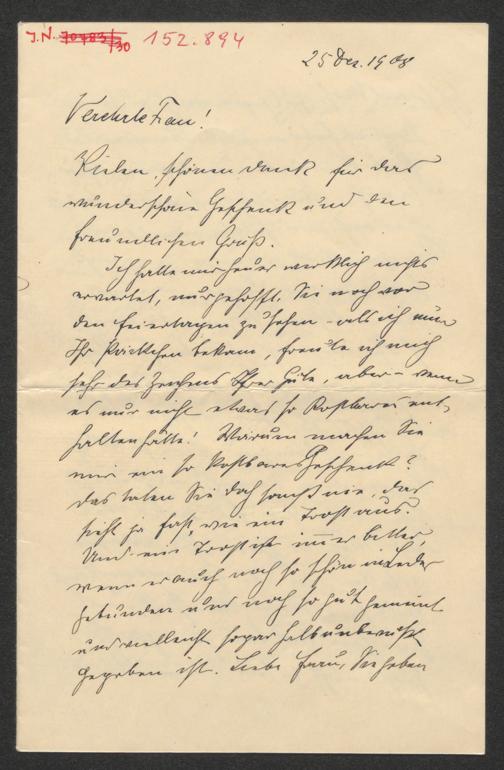 J.N. 70483/30 152.894
25 Dez. 1908
Verehrte Frau!
Vielen, schönen Dank für das
wunderschöne Geschenk und den
freundlichen Gruß.
Ich hatte mir heuer wirklich nichts
erwartet, nur gehofft, Sie noch vor
den Feiertagen zu sehen – als ich nun
Ihr Päckchen bekam, freute ich mich
sehr des Zeichens Ihrer Güte, aber – wenn
es nur nicht etwas so Kostbares ent-
halten hätte! Warum machen Sie
mir ein so kostbares Geschenk?
Das taten Sie doch sonst nie, das
sieht ja fast wie ein Trost aus.
Und ein Trost ist immer bitter
wenn er auch noch so schön in Leder
gebunden und noch so gut gemeint
und vielleicht sogar halb unbewußt
gegeben ist. Liebe Frau, Sie haben